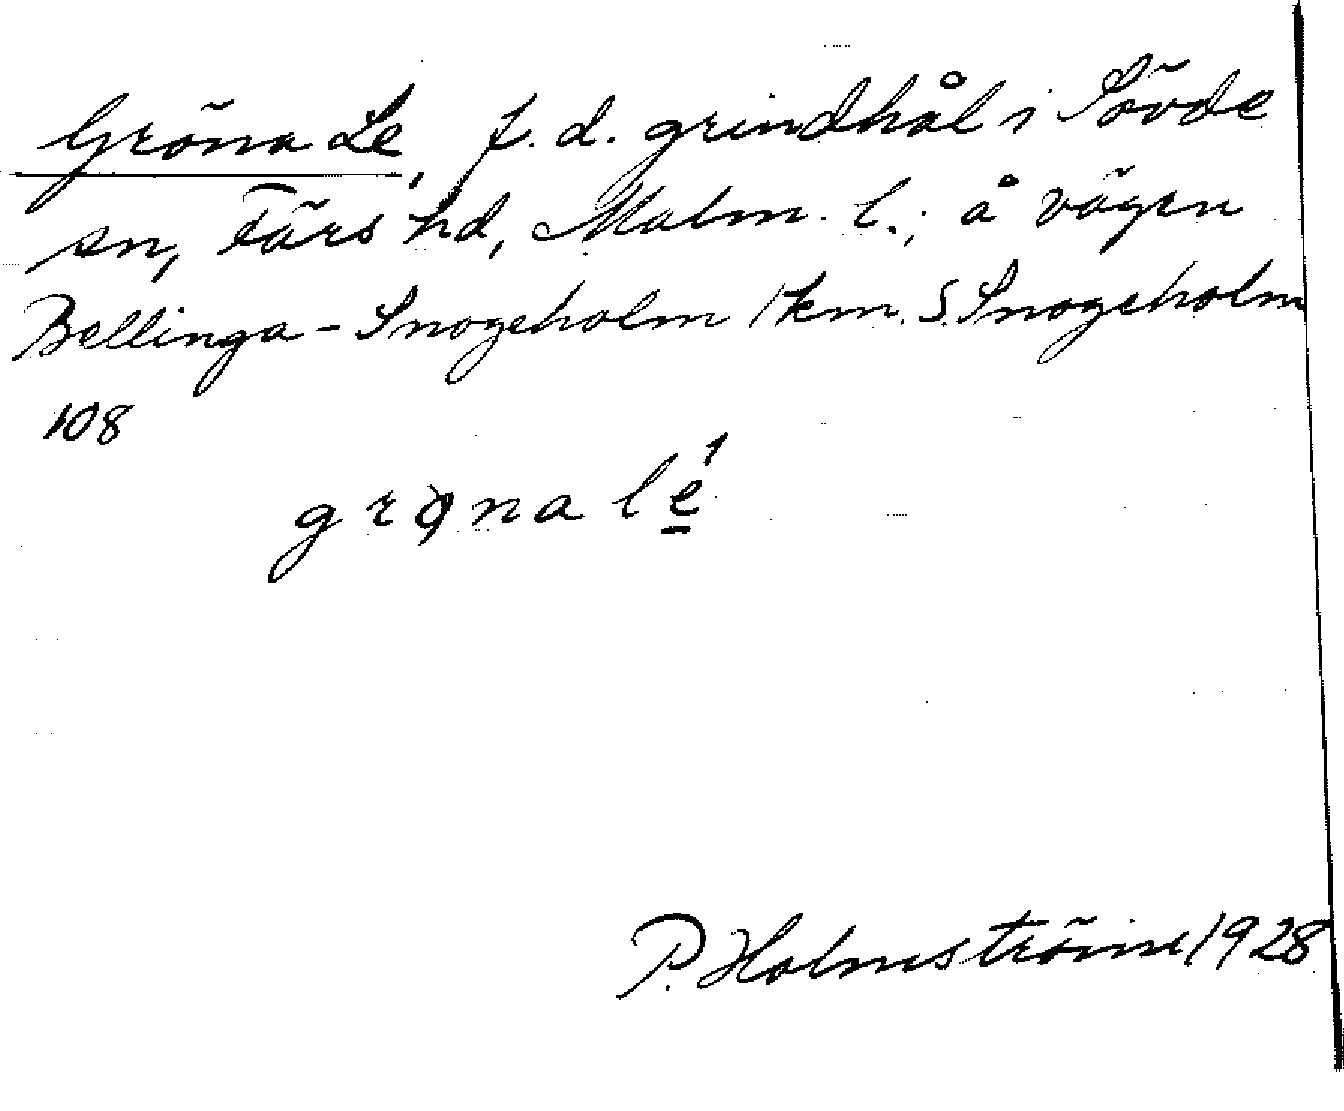 Gröna Le, f. d. grindhål i Sövde
sn, Färs hd, Malm. l.; å vägen
Bellinga - Snogeholm 1 km. S. Snogeholm
108
grøna lé
P. Holmström 1928